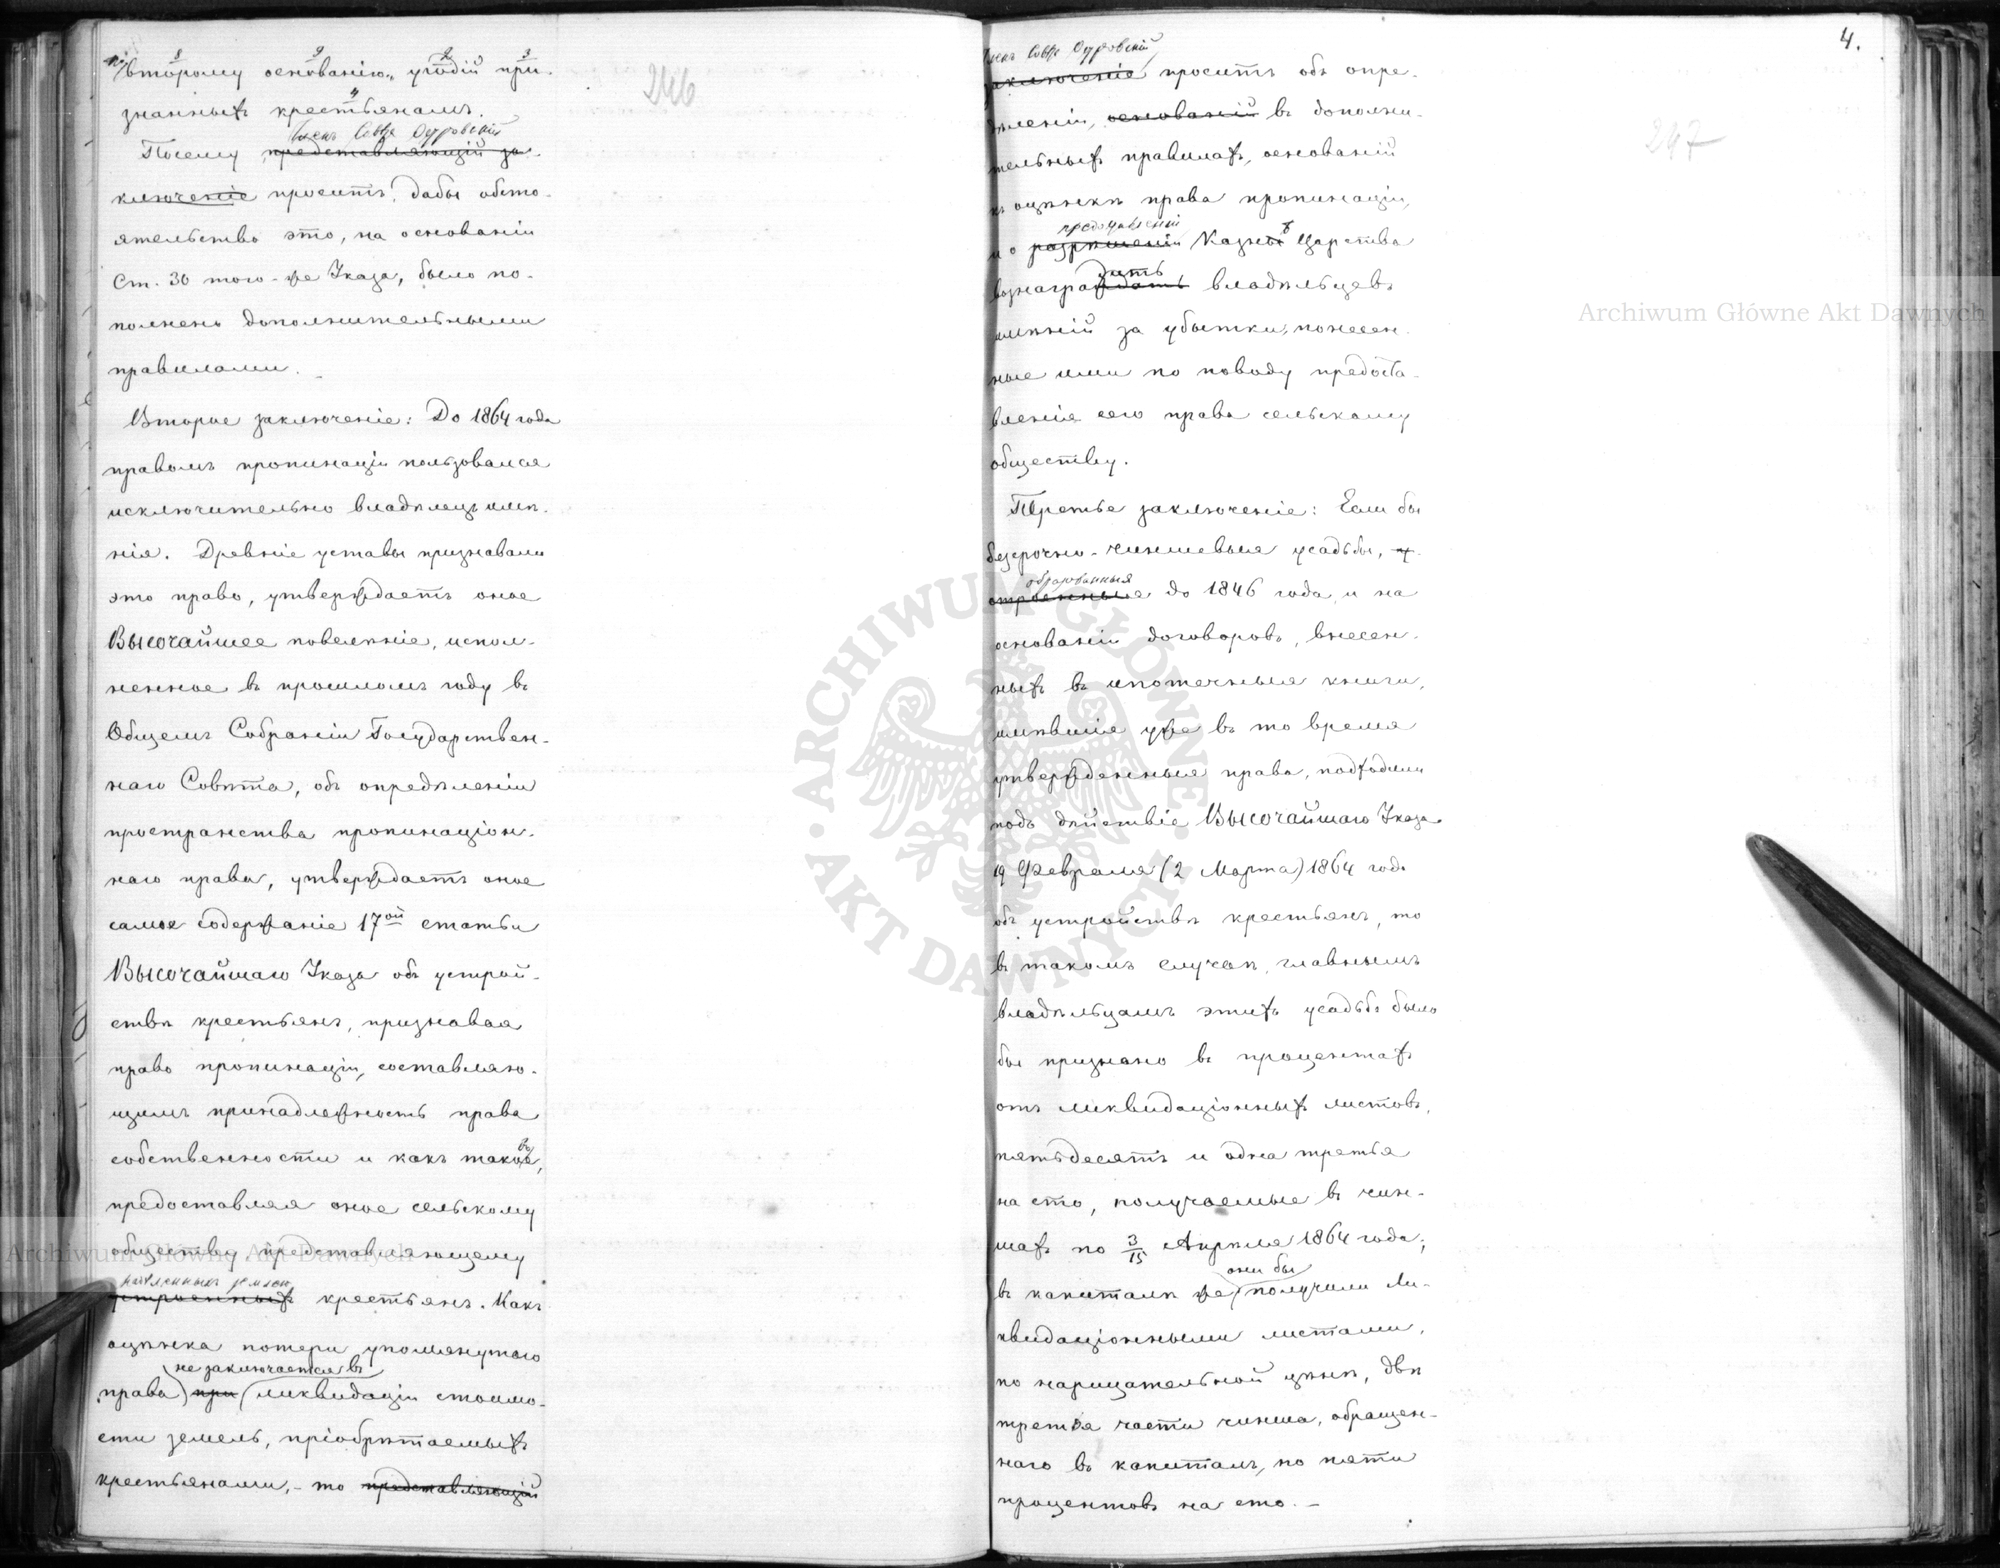 второму основанію, угодій при-
знанныхъ крестьянамъ.
246
Членъ Совѣта Островскій
Посему представляющій за-
ключеніе проситъ, дабы обсто-
ятельство это, на основаніи
Ст. 30 того-же Указа, было по-
полнено дополнительными
правилами.
Второе заключеніе: До 1864 года
правомъ пропинаціи пользовался
исключительно владѣлецъ имѣ-
нія. Древніе уставы признавали
это право, утверждаетъ оное
Высочайшее повелѣніе, испол-
ненное въ прошломъ году въ
Общемъ Собраніи Государствен-
наго Совѣта, объ опредѣленіи
пространства пропинаціон-
наго права, утверждаетъ оное
самое содержаніе 17ой статьи
Высочайшаго Указа объ устрой-
ствѣ крестьянъ, признавая
право пропинаціи, составляю-
щимъ принадлежность права
собственности и какъ таковое,
предоставляя оное сельскому
обществу представляющему
надѣленныхъ землею
устроенныхъ крестьянъ. Какъ
оцѣнка потери упомянутаго
не заключается въ
права при ликвидаціи стоимо-
сти земель, пріобрѣтаемыхъ
крестьянами, - то представляющій
4.
Членъ Совѣта Островскій
заключеніе проситъ объ опре-
дѣленіи, основаній въ дополни-
247
тельныхъ правилахъ, основаній
къ оцѣнкѣ права пропинаціи,
предоставленіи
и о разрѣшеніи Казнѣ Царства
дить
вознаграждать владѣльцевъ
имѣній за убытки, понесен-
ные ими по поводу предоста-
вленія сего права сельскому
обществу.
Третье заключеніе: Если бы
безсрочно-чиншевыя усадьбы, у-
образованныя
строенные до 1846 года и на
основаніи договоровъ, внесен-
ныхъ въ ипотечныя книги,
имѣвшіе уже въ то время
утвержденныя права, подходили
подъ дѣйствіе Высочайшаго Указа
19 Февраля (2 Марта) 1864 года
объ устройствѣ крестьянъ, то
въ такомъ случаѣ, главнымъ
владѣльцамъ этихъ усадьбъ было
бы признано въ процентахъ
отъ ликвидаціонныхъ листовъ,
пятьдесятъ и одна третья
на сто, получаемые въ чин-
шахъ по 3/15 Апрѣля 1864 года;
они бы
въ капиталѣ же получили Ли-
квидаціонными листами,
по нарицательной цѣнѣ, двѣ
третья части чинша, обращен-
наго въ капиталъ, по пяти
процентовъ на сто. -
Archiwum Główne Akt Dawnych
Archiwum Główne Akt Dawnych
ARCHIWUM GŁÓWNE AKT DAWNYCH